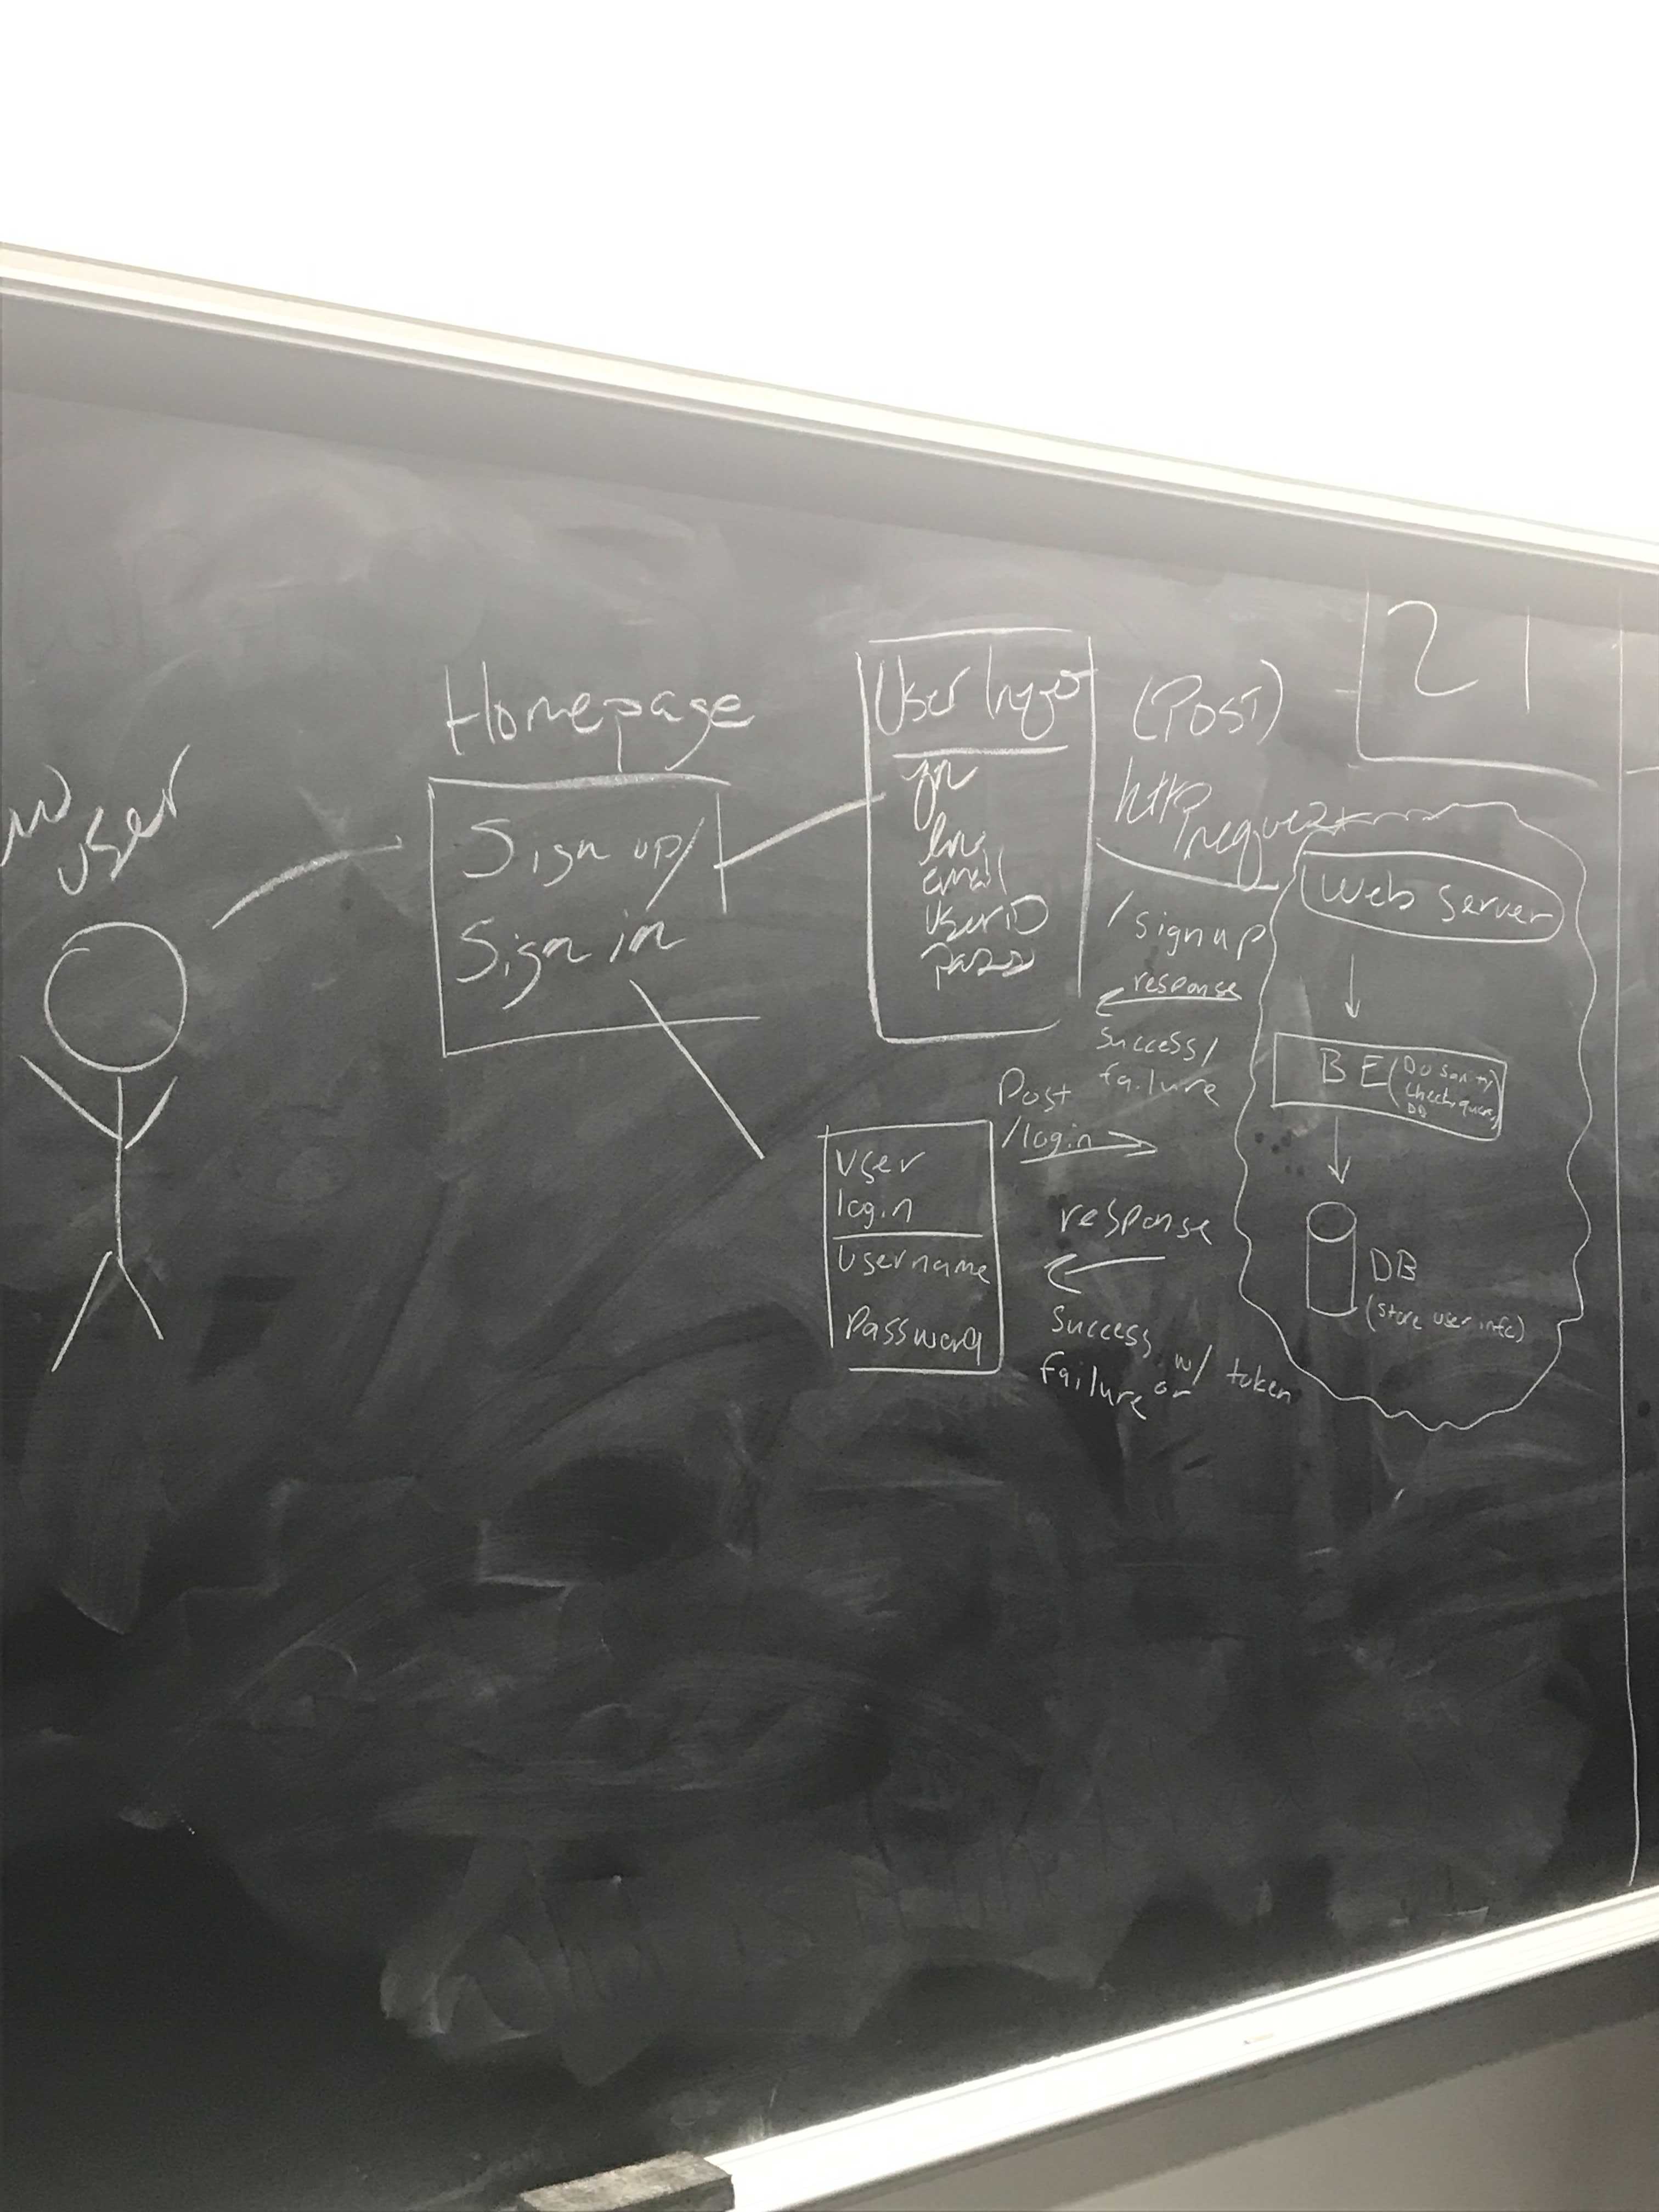 user
Homepage
Sign up/
Sign in
User Info
fn
ln
email
userID
pass
(POST)
http request
/signup
response
success/
failure
21
web server
BE (Do sanity
check, query
DB
DB
(store user info)
user
login
username
password
Post
/login
response
success w/ token
failure or